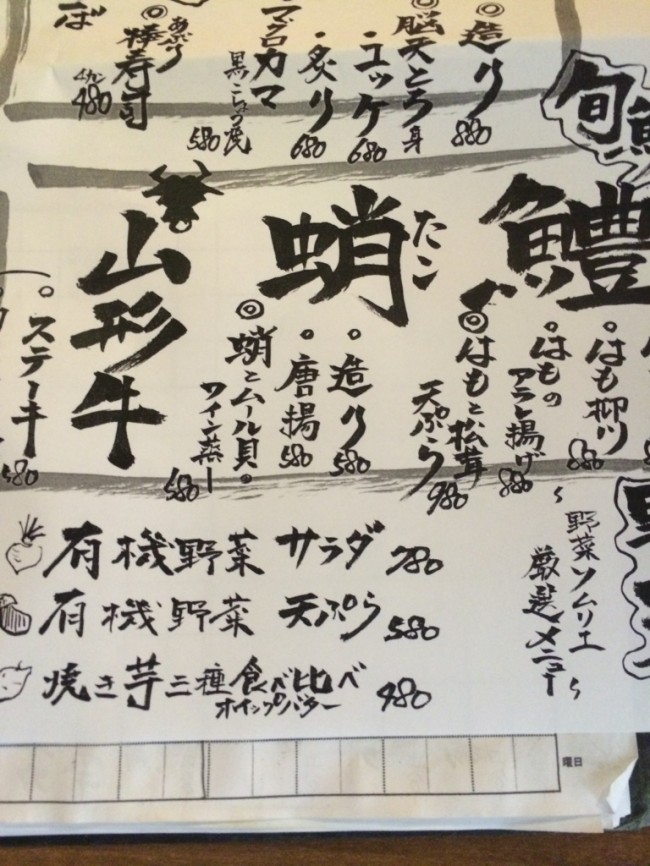 旬
造り
880
脳天とろ身
ユッケ
680
炙り
680
マグロカマ
黒こしょう
580
あぶり
棒寿司
480
鱧
はも柳川
880
はもの
アラレ揚げ
880
はもと松茸
天ぷら
980
蛸
たこ
造り
580
唐揚
580
蛸とムール貝の
ワイン蒸し
580
山形牛
ステーキ
580
〜野菜ソムリエ
厳選メニュー〜
有機野菜 サラダ 780
有機野菜 天ぷら 580
焼き芋三種食べ比べ 480
ホイップバター
曜日